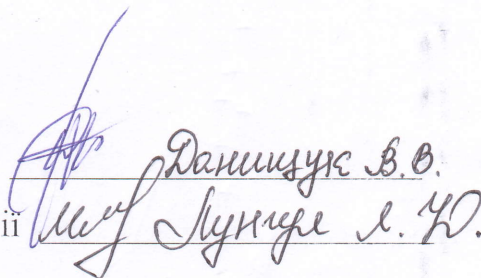 Данищук В.В.
ії Лунгул Л. Ю.